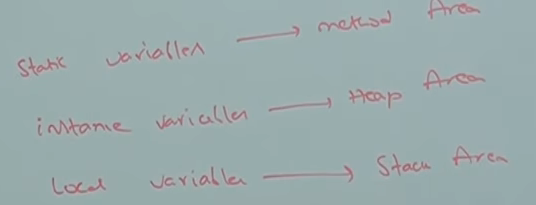 Static variables → method Area
instance variables → Heap Area
Local variables → Stack Area